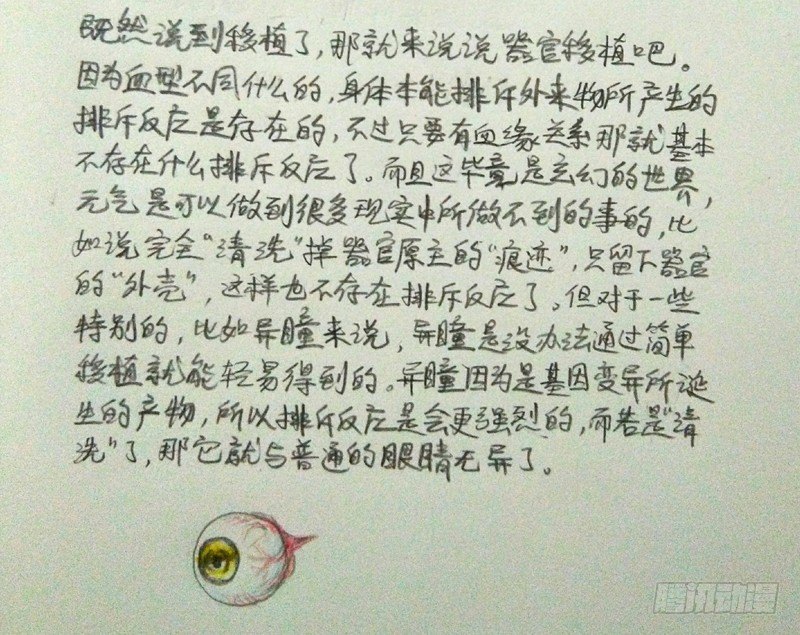 既然说到移植了,那就来说说器官移植吧。
因为血型不同什么的,身体本能排斥外来物所产生的
排斥反应是存在的,不过只要有血缘关系那就基本
不存在什么排斥反应了。而且这毕竟是玄幻的世界,
元气是可以做到很多现实中所做不到的事的,比
如说完全“清洗”掉器官原主的“痕迹”,只留下器官
的“外壳”,这样也不存在排斥反应了。但对于一些
特别的,比如异瞳来说,异瞳是没办法通过简单
移植就能轻易得到的。异瞳因为是基因变异所诞
生的产物,所以排斥反应是会更强烈的,而若是“清
洗”了,那它就与普通的眼睛无异了。
腾讯动漫